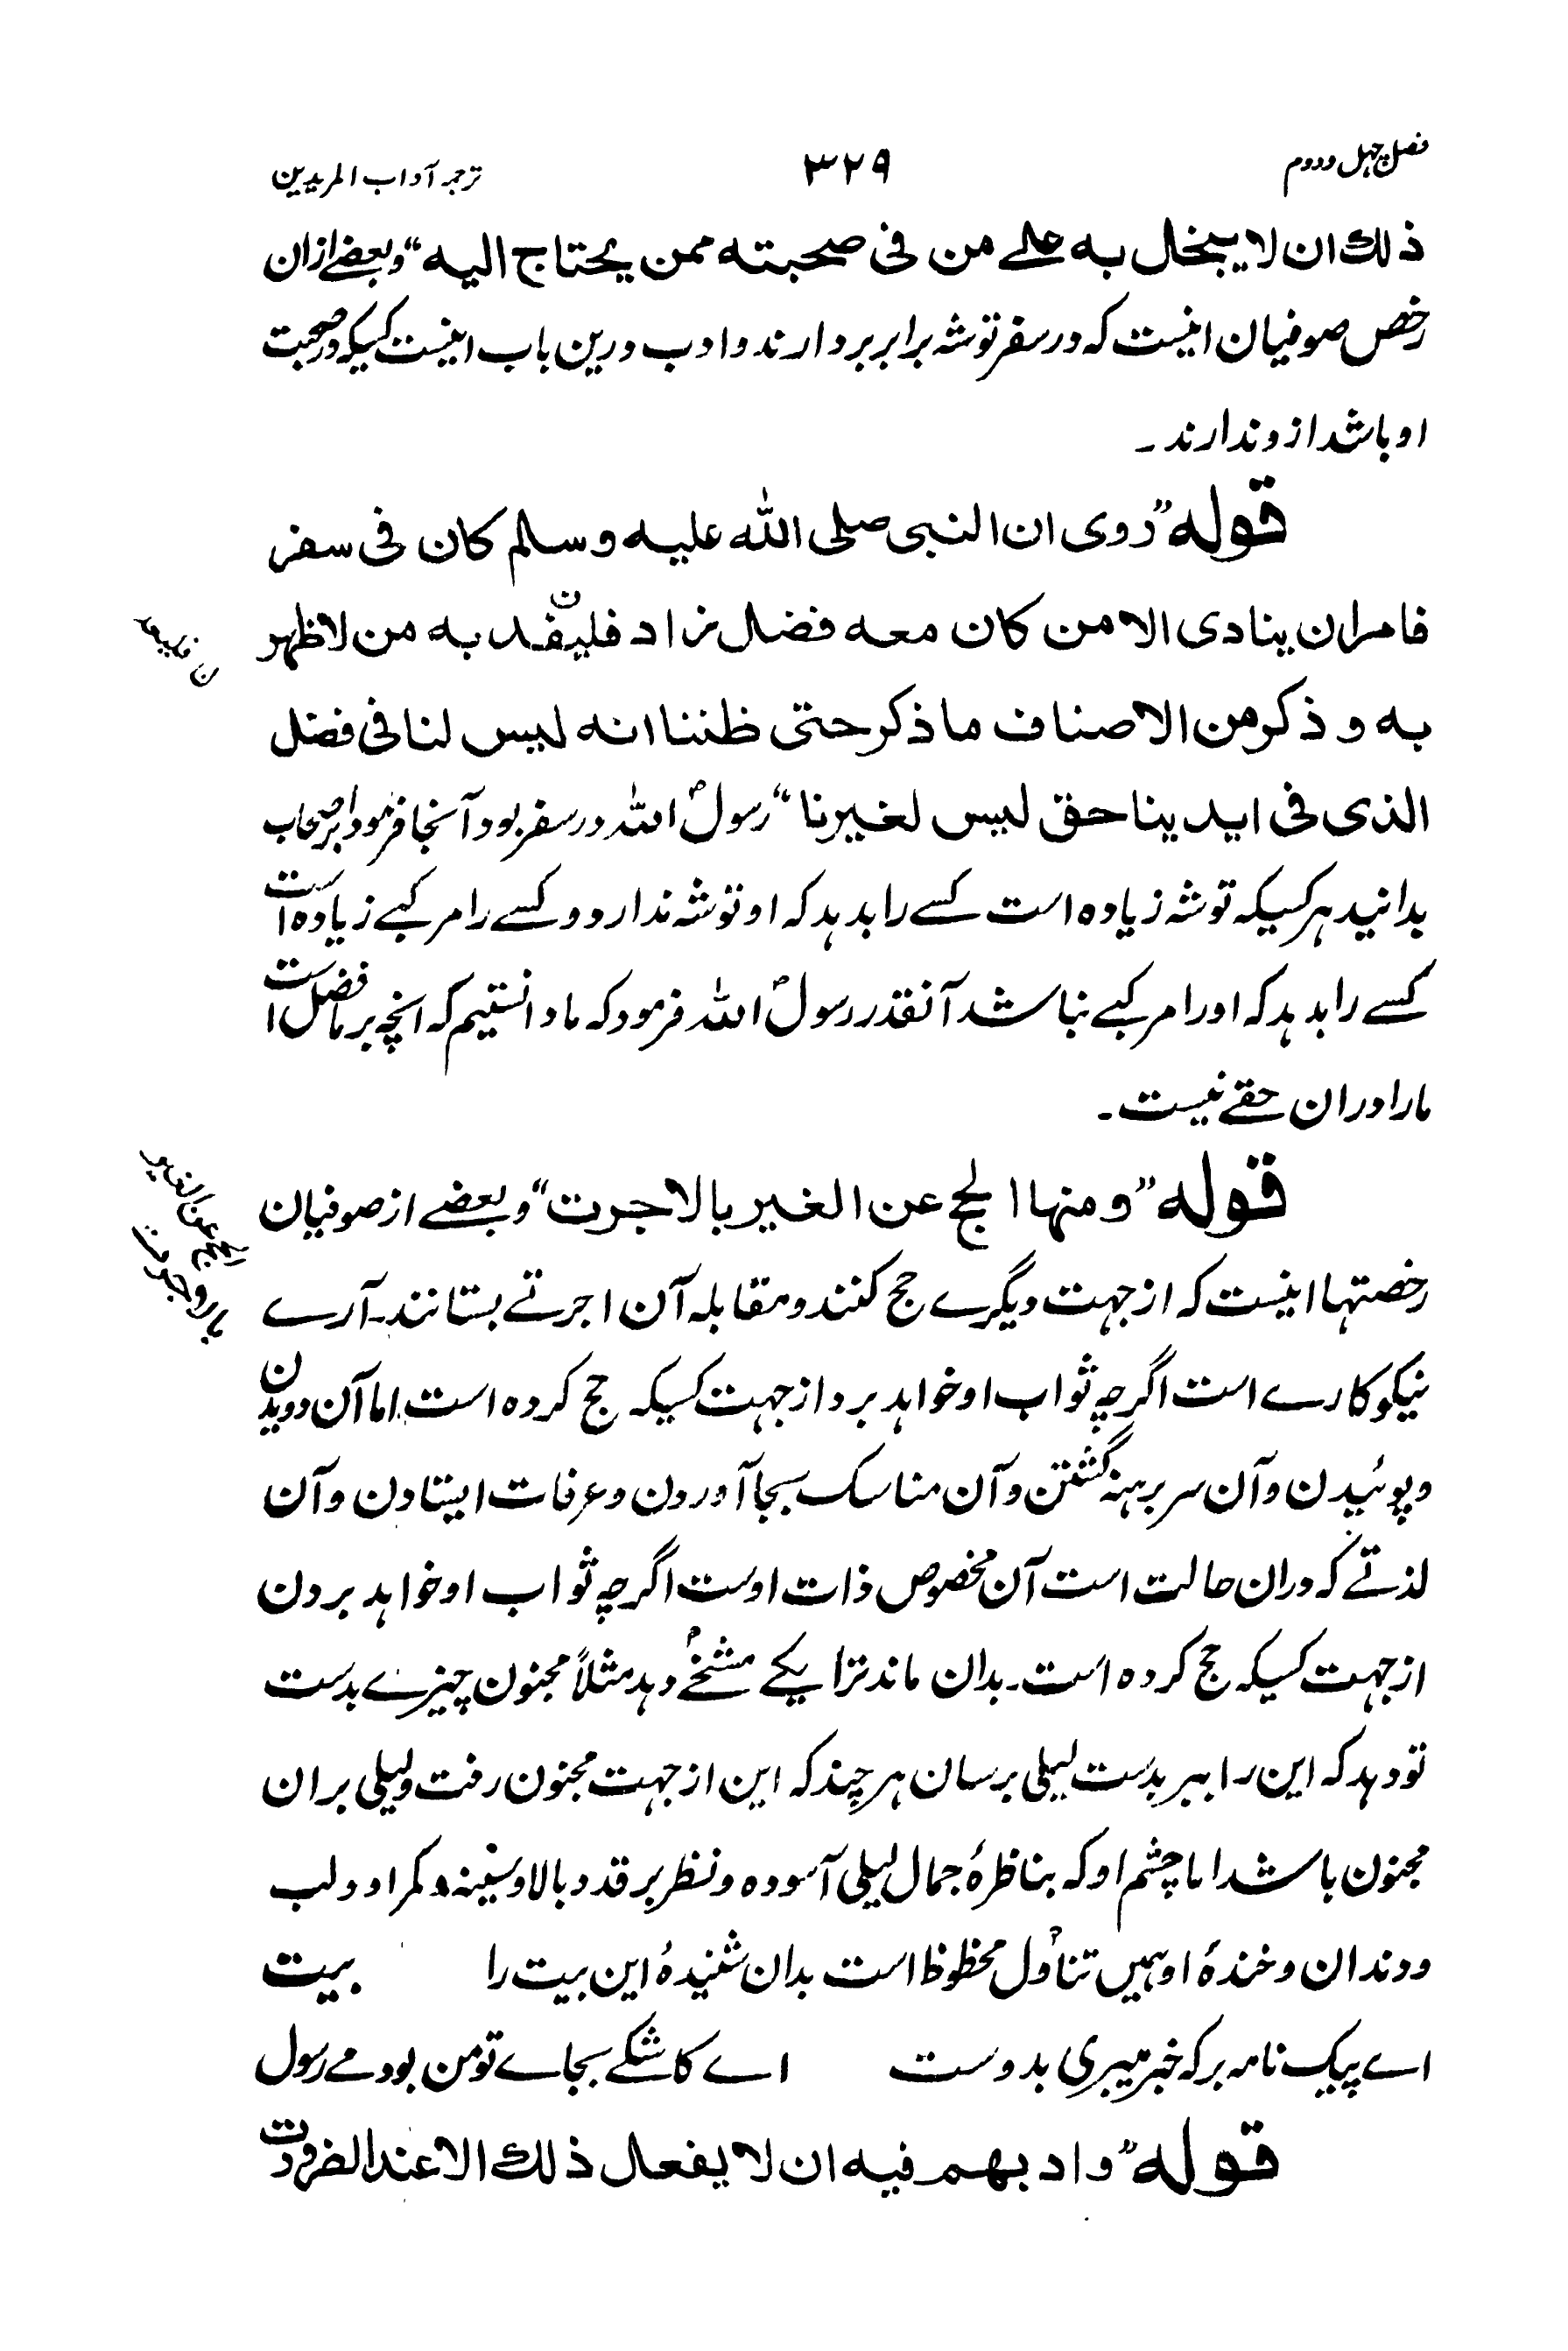 فصل چهل و دوم ۳۲۹ ترجمہ آداب المریدین
ذلك ان لا يبخل به علے من فی صحبته ممن يحتاج اليه“ وبعضے ازان
رخص صوفیان اینست که در سفر توشه برابر بردارند و ادب درین باب اینست کسیکه در صحبت
او باشد ازو ندارند۔
قوله ”روی ان النبی صلی اللہ علیه وسلم كان فی سفر
فامر ان ینادی الا من كان معه فضل زاد فليفد به من لا ظهر
به و ذكر من الاصناف ما ذكر حتی ظننا انه ليس لنا فی فضل
الذی فی ايدينا حق ليس لغيرنا“ رسولؐ اللہ در سفر بود آنجا فرمود بر اصحاب
بدانید هر کسیکه توشه زیاده است کسے را بدهد که او توشه ندارد و کسے را مرکبے زیاده است
کسے را بدهد که او را مرکبے نباشد آنقدر رسولؐ اللہ فرمود که ما دانستیم که انچه بر ما فضل است
ما را دران حقے نیست۔
قوله ”ومنها الحج عن الغير بالاجرت“ وبعضے از صوفیان
رخصتها اینست که از جهت دیگرے حج کنند و مقابله آن اجرتے بستانند۔ آرے
نیکو کارے است اگرچه ثواب او خواهد برد از جهت کسیکه حج کرده است اما آن دویدن
و پوئیدن و آن سر برهنه گشتن و آن مناسک بجا آوردن و عرفات ایستادن و آن
لذتے که دران حالت است آن مخصوص ذات اوست اگرچه ثواب او خواهد بردن
از جهت کسیکه حج کرده است۔ بدان ماند ترا یکے مشخے دهد مثلاً مجنون چیزے بدست
تو دهد که این را ببر بدست لیلی برسان هر چند که این از جهت مجنون رفت و لیلی بران
مجنون باشد اما چشم او که بناظرۂ جمال لیلی آسوده و نظر بر قد و بالا و سینه و کمر او و لب
و دندان و خندۂ او همیں تناول محظوظ است بدان شنیدۂ این بیت را بیت
اے پیک نامه بر که خبر میبری بدوست اے کاشکے بجاے تو من بودمے رسول
قوله ”وادبهم فيه ان لا يفعل ذلك الا عند الضرورت